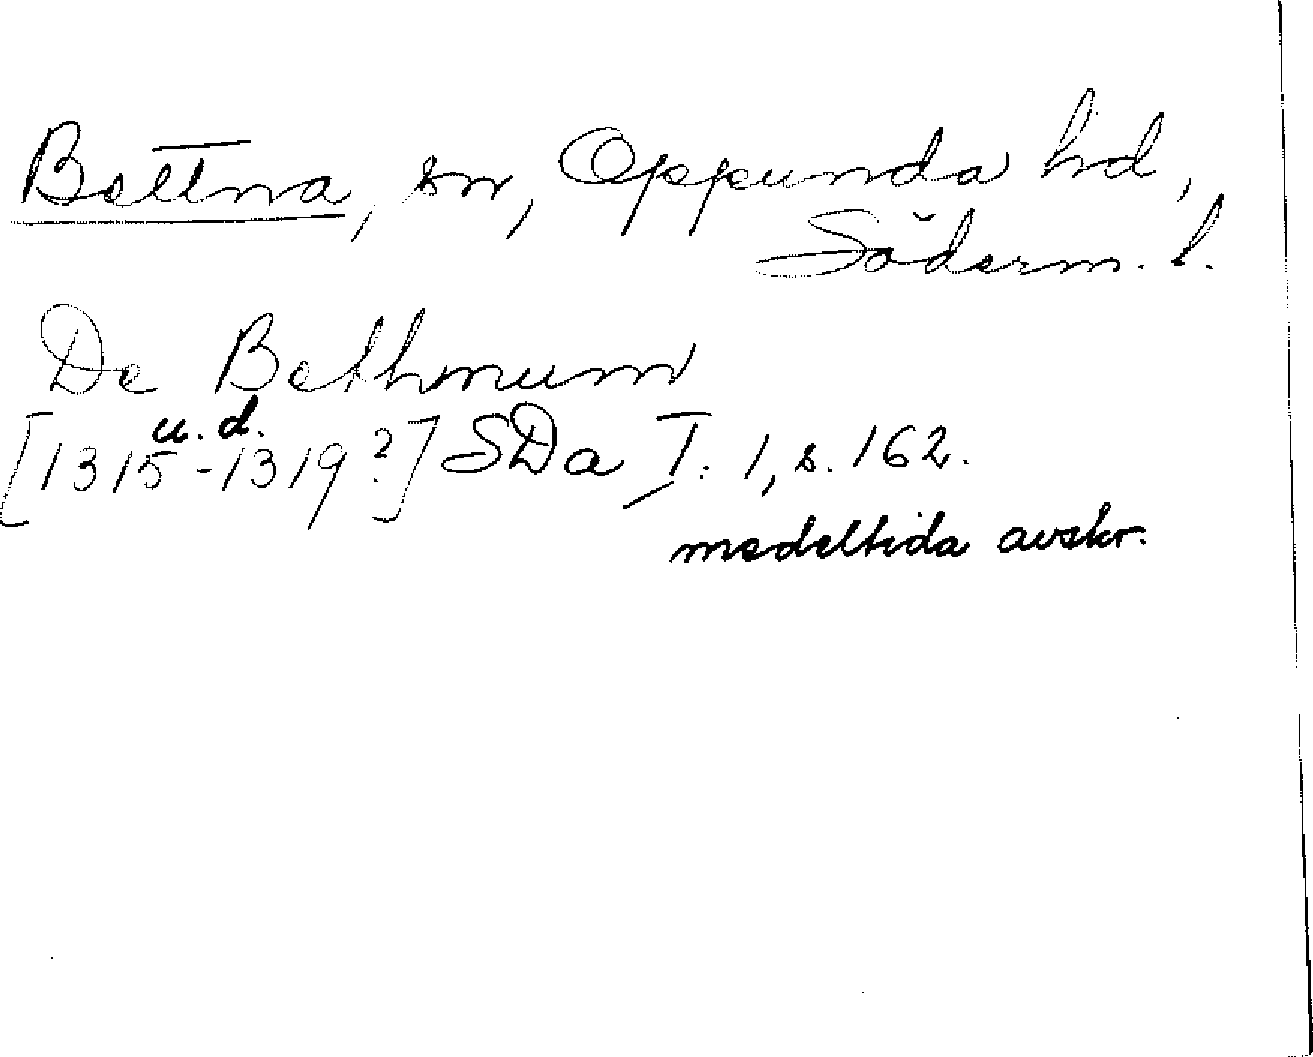 Bettna, sn, Oppunda hd,
Söderm. l.
De Bethmum
u. d.
[1315-1319?] SDa I: 1, s. 162.
medeltida avskr.